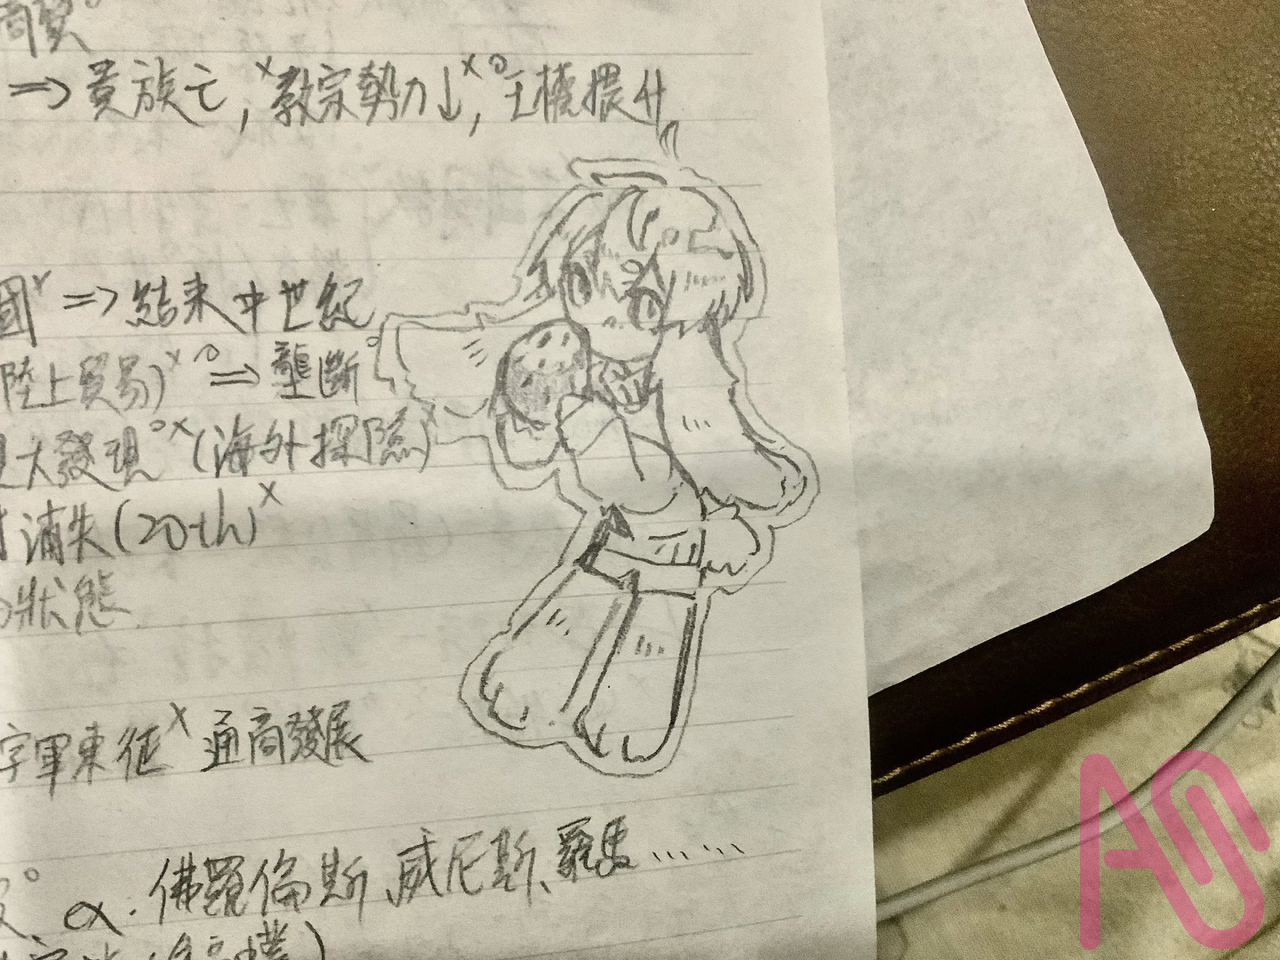 商貿°
⇒ 貴族亡, ˣ教宗勢力↓,ˣ° 王權擴升
國ˣ ⇒ 結束中世紀
陸上貿易)ˣ° ⇒ 壟斷°
大發現°ˣ (海外探險)
消失(20-th)ˣ
狀態
字軍東征ˣ 通商發展
α. 佛羅倫斯、威尼斯、羅馬……
AS